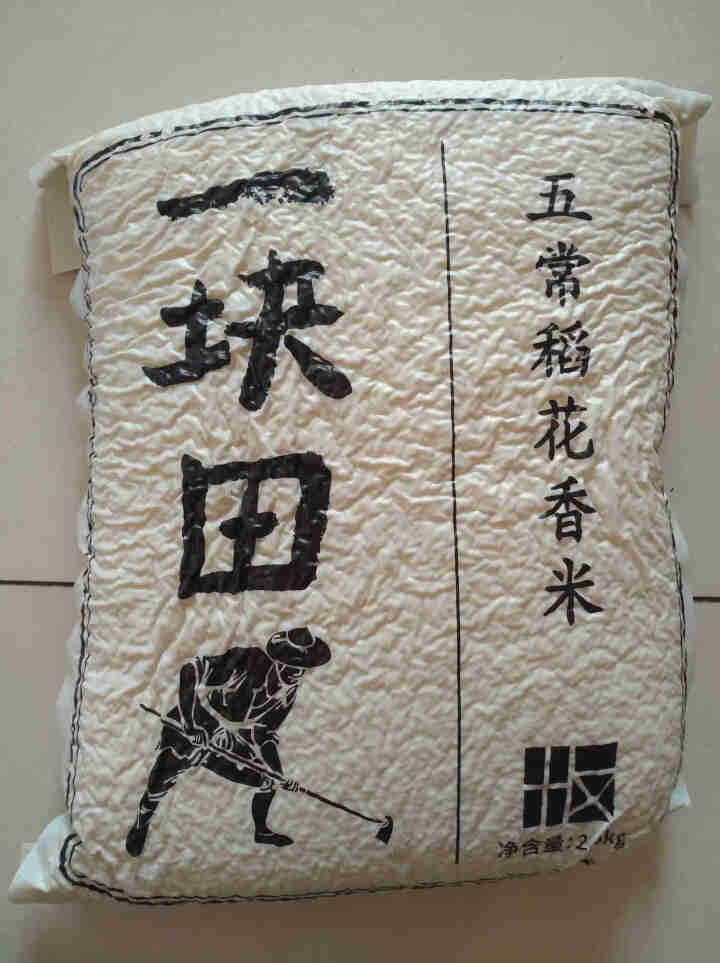 一块田
五常稻花香米
净含量:2.5kg